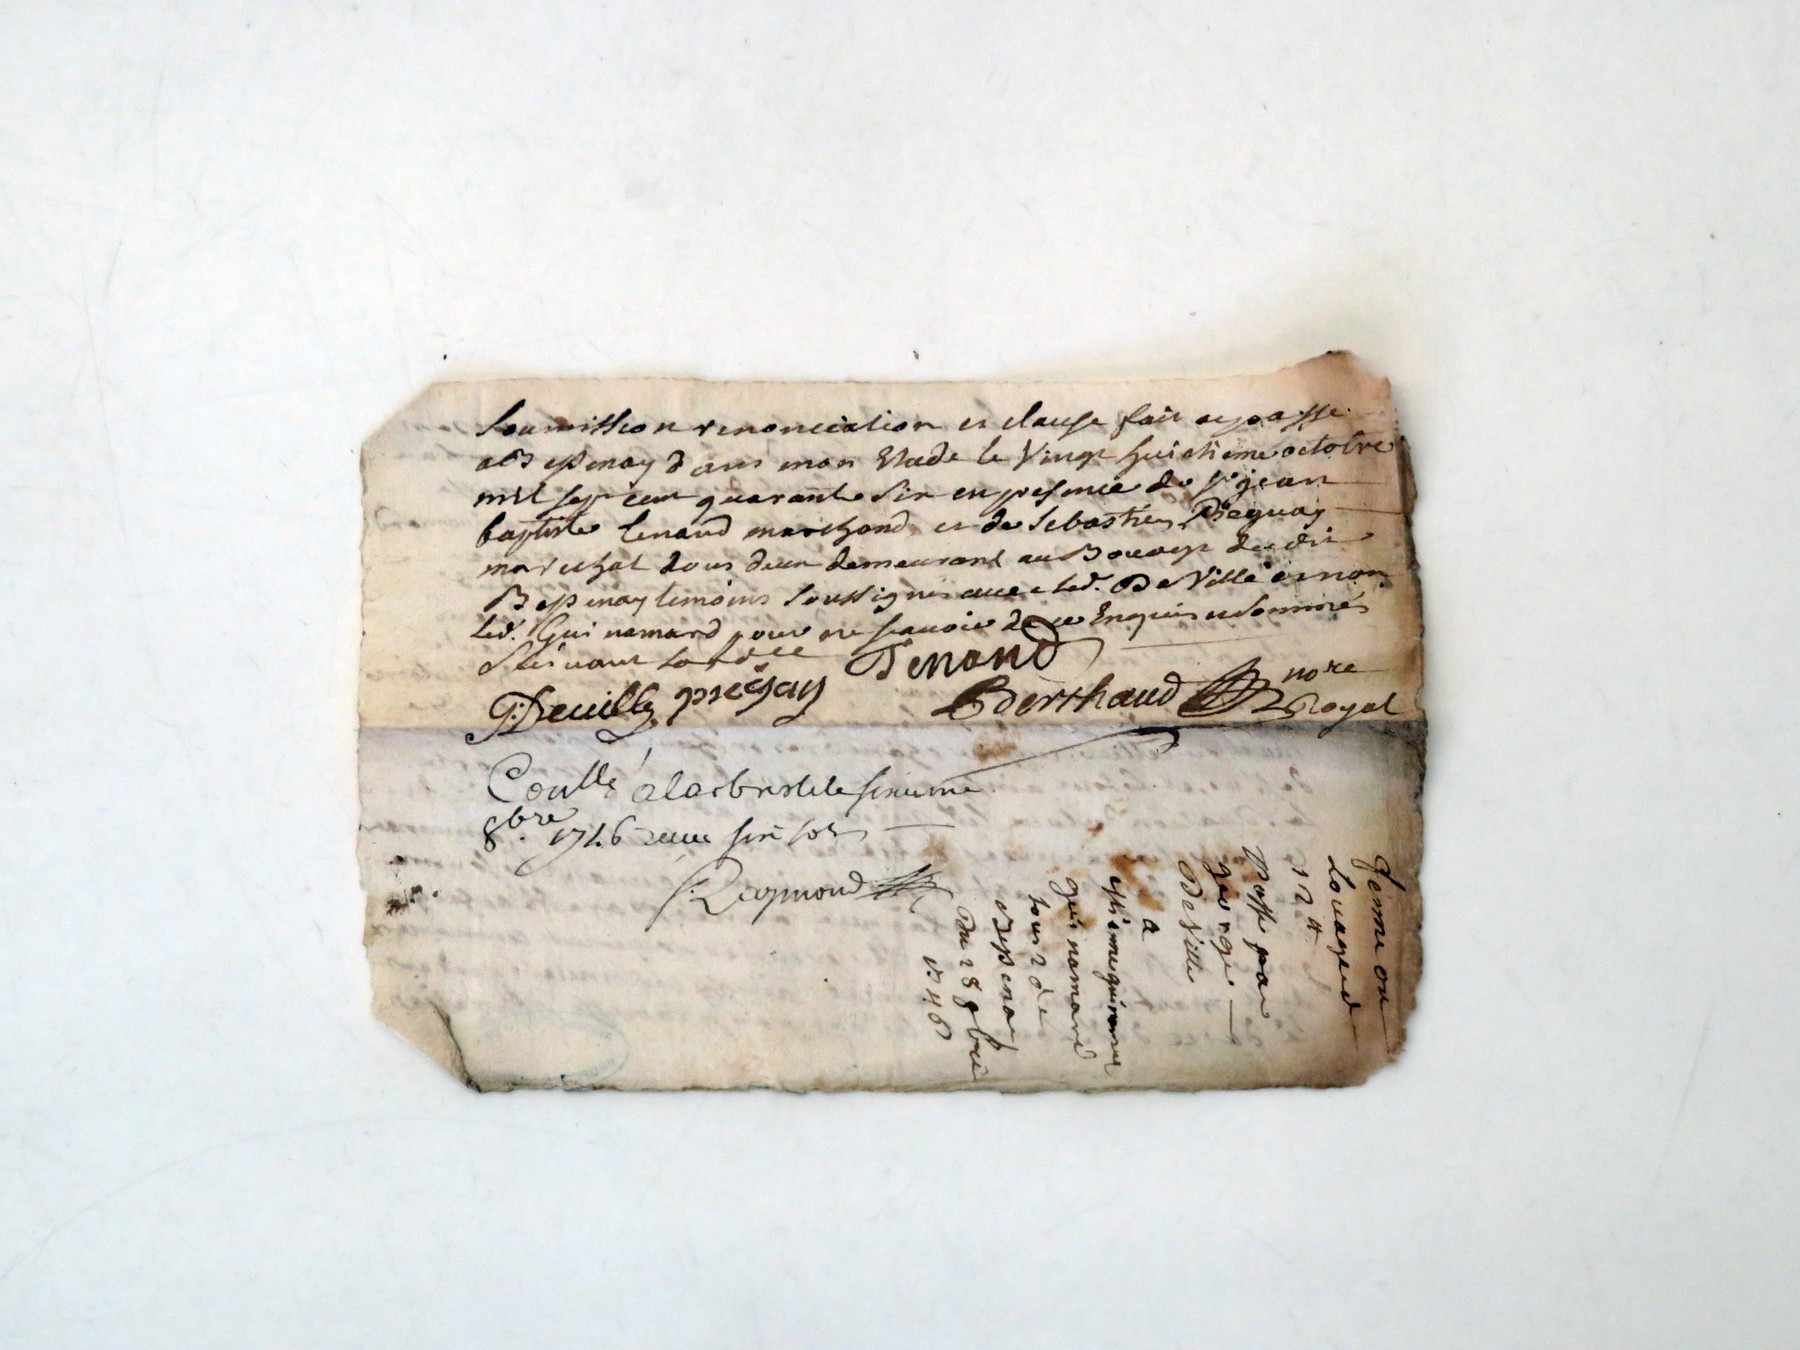 Soumission renonciation et clause fait et passe
a Bessenay dans mon Etude le Vingt huictieme octobre
mil sept cent quarante Six en presence de Sr jean
baptiste Tenand marchand et de Sebastien
marechal tous deux demeurant au Bourg dudit
Bessenay temoins Soussignes avec led. De Ville et non
led. Guinamard pour ne scavoir de ce Enquis et Sommés
Suivant
G: Deville Tenand
Berthaud nore
Royal
Conllé a larbresle le
8bre 1746
Reymond
ferme ou
Louaged
Passé par
george
De Ville
a
guinamard
tour de
Bessenay
Du 28 8bre
1746